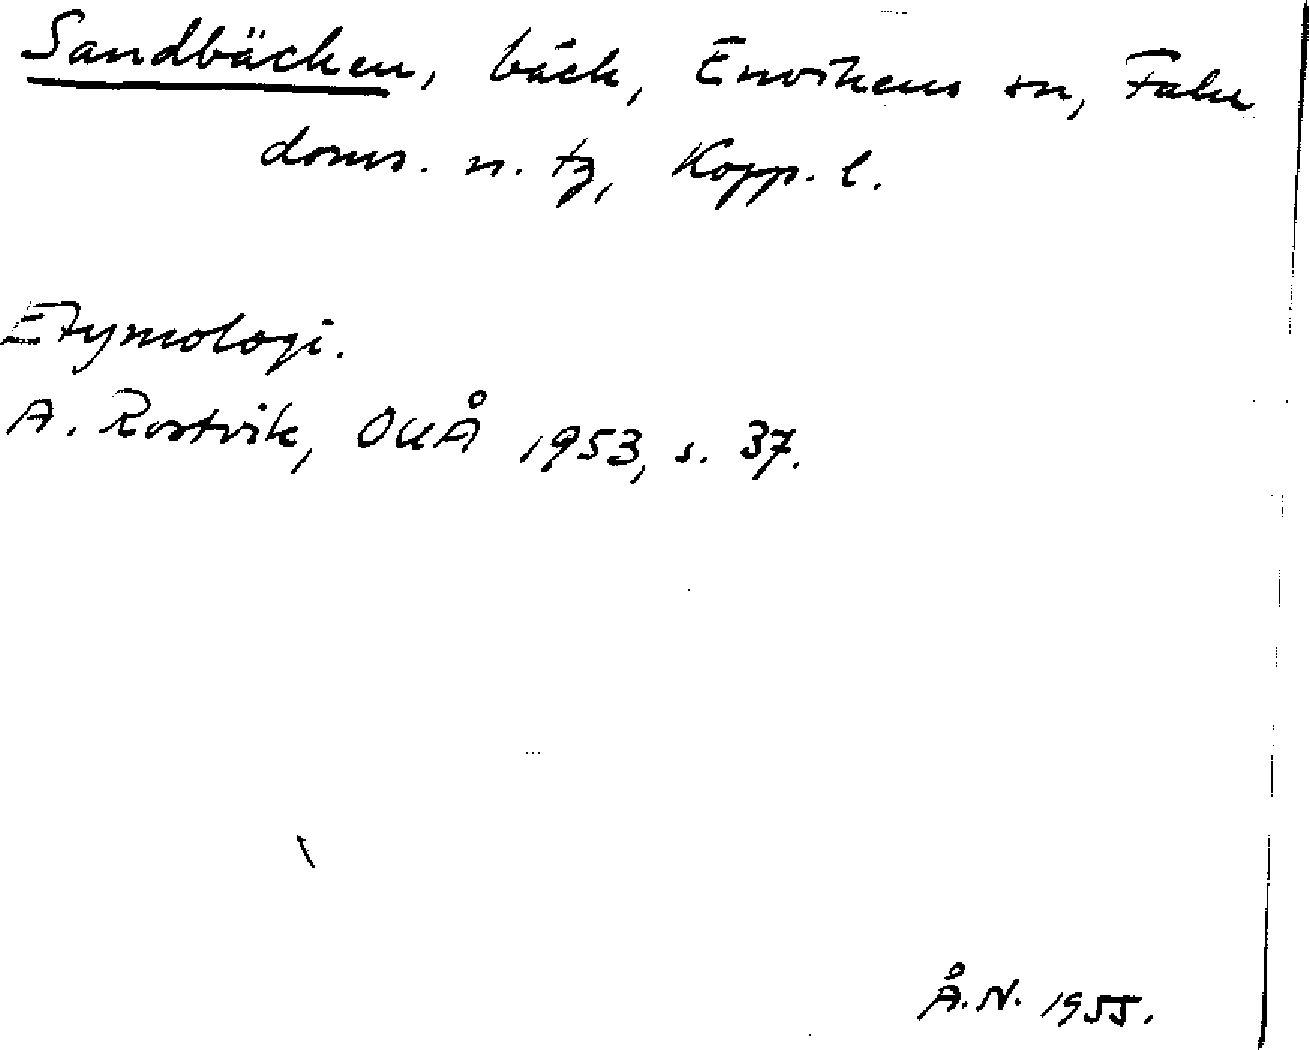 Sandbäcken, bäck, Envikens sn, Falu
doms. n. tg, Kopp. l.
Etymologi.
A. Rostvik, OUÅ 1953, s. 37.
Å. N. 1955.